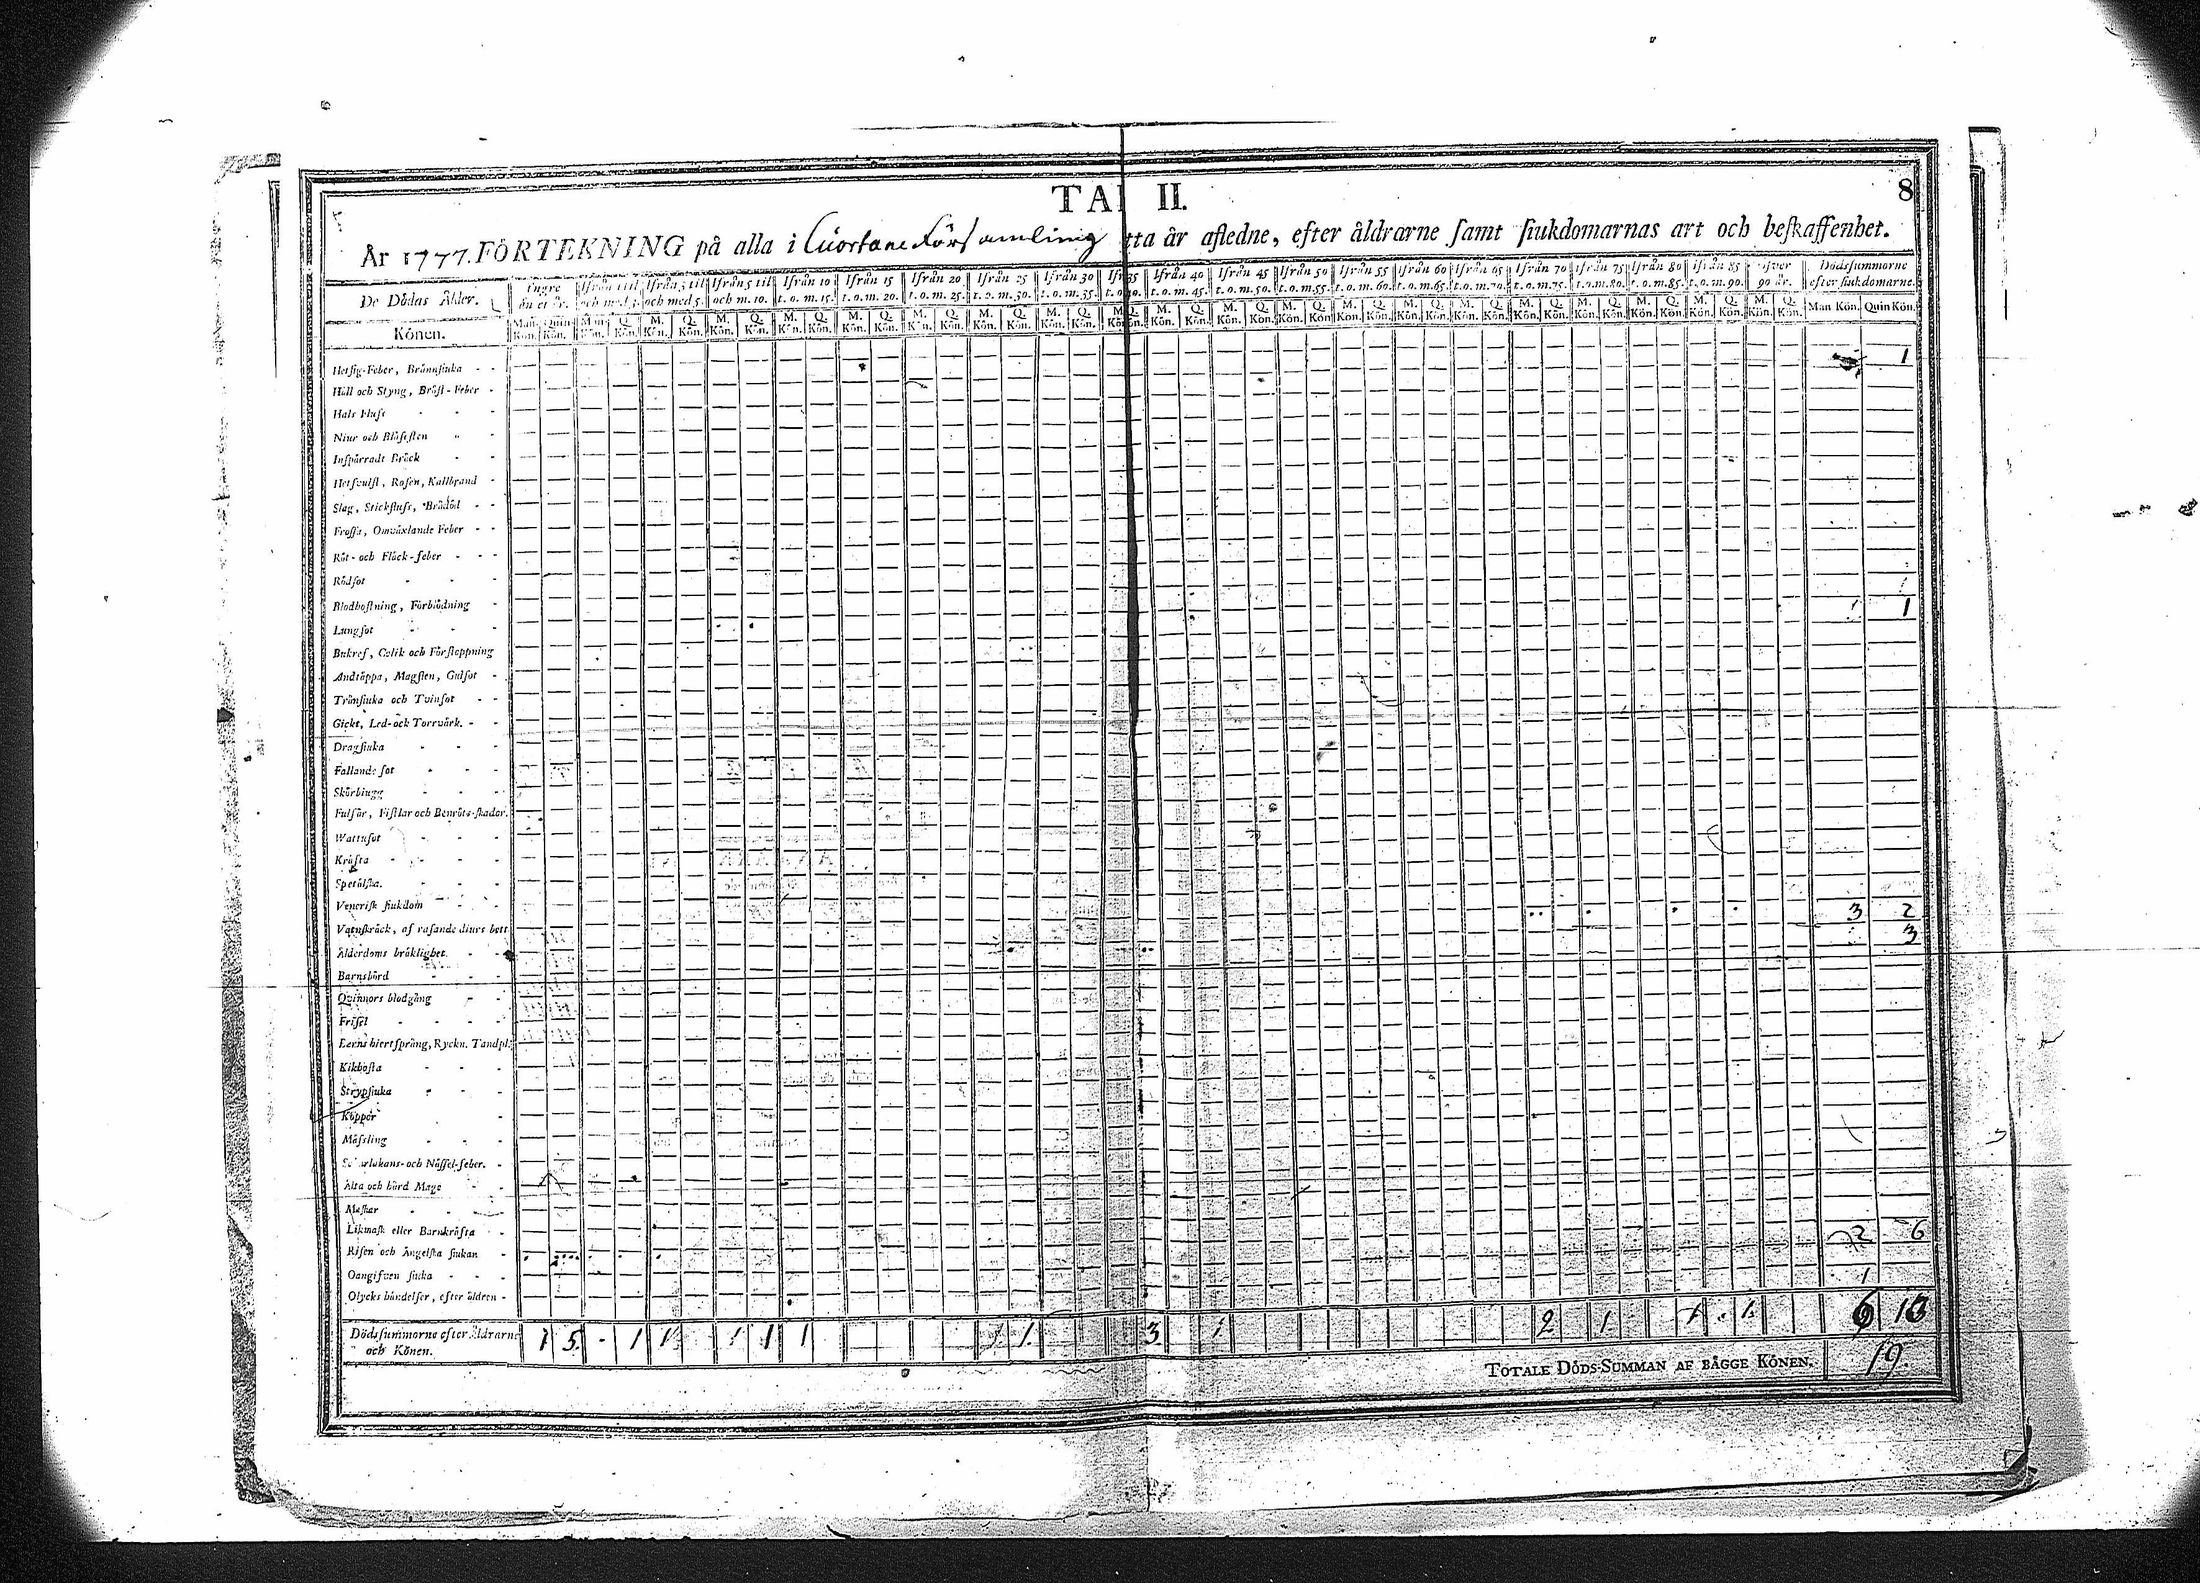 TAB II.
8
År 1777. FÖRTEKNING på alla i Cuortane Församling tta år afledne, efter åldrarne samt siukdomarnas art och beskaffenhet.
De Dödas Ålder. Yngre än et år. Ifrån 1 til och med 3. Ifrån 3 til och med 5. Ifrån 5 til och m. 10. Ifrån 10 t. o. m. 15. Ifrån 15 t. o. m. 20. Ifrån 20 t. o. m. 25. Ifrån 25 t. o. m. 30. Ifrån 30 t. o. m. 35. Ifrån 40 t. o. m. 45. Ifrån 45 t. o. m. 50. Ifrån 50 t. o. m. 55. Ifrån 55 t. o. m. 60. Ifrån 60 t. o. m. 65. Ifrån 65 t. o. m. 70. Ifrån 70 t. o. m. 75. Ifrån 75 t. o. m. 80. Ifrån 80 t. o. m. 85. Ifrån 85 t. o. m. 90. öfver 90 år. Dödssummorne efter siukdomarne.
Könen. Man Kön. Quin Kön. Man Kön. Q. Kön. M. Kön. Q. Kön. M. Kön. Q. Kön. M. Kön. Q. Kön. M. Kön. Q. Kön. M. Kön. Q. Kön. M. Kön. Q. Kön. M. Kön. Q. Kön. M. Kön. Q. Kön. M. Kön. Q. Kön. M. Kön. Q. Kön. M. Kön. Q. Kön. M. Kön. Q. Kön. M. Kön. Q. Kön. M. Kön. Q. Kön. M. Kön. Q. Kön. M. Kön. Q. Kön. M. Kön. Q. Kön. M. Kön. Q. Kön. M. Kön. Q. Kön. Man Kön. Quin Kön.
Hetsig-Feber, Brännsiuka - - 1
Håll och Styng, Bröst-Feber -
Hals Fluss - - -
Niur och Blåsesten - -
Inspärradt Bråck - -
Hetsvulst, Rosen, Kallbrand -
Slag, Stickfluss, Brådöd - -
Frossa, Omväxlande Feber - -
Röt- och Fläck-feber - - -
Rödsot - - -
Blodhostning, Förblödning - 1
Lungsot - - -
Bukref, Colik och Förstoppning
Andtäppa, Magsten, Gulsot - -
Trånsiuka och Tvinsot - -
Gickt, Led- ock Torrvärk. - -
Dragsiuka - - -
Fallande sot - - -
Skörbiugg - - -
Fulsår, Fistlar och Benröts-skador.
Wattusot - -
Kräfta - - - -
Spetälska. - - -
Venerisk siukdom - -
Vatnskräck, af rasande diurs bett 3 2
Ålderdoms bräklighet. - - 3
Barnsbörd - - -
Qvinnors blodgång - -
Frisel - - - -
Barns hiertsprång, Ryckn. Tandpl.
Kikhosta - - -
Strypsiuka - -
Koppor - -
Mässling - - -
Scharlakans- och Nässel-feber. -
Älta och hård Mage - -
Maskar - - -
Likmask eller Barnkräfta - -
Risen och Ängelska siukan - 2 6
Oangifven siuka - - -
Olycks händelser, efter åldren - 1
Dödssummorne efter Åldrarne och Könen. 1 5. - 1 1 1 1 1 1. 3. 1 2 1 1 1. 6 13
TOTALE DÖDS-SUMMAN AF BÄGGE KÖNEN. 19.